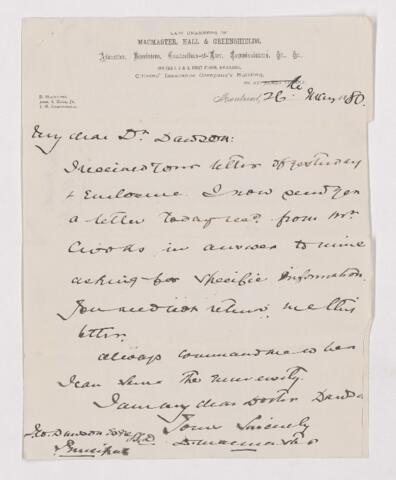 LAW CHAMBERS OF
MACMASTER, HALL & GREENSHIELDS,
Advocates, Barristers, Commissioners, &c. &c.
Citizens' Insurance Company's Building,
Montreal, 26th May 1880.
My dear Dr Dawson:
I received your letter of yesterday
& Enclosure. I now send you
a letter today recd from Mr
Crooks in answer to mine
asking for specific information.
You need not return me this
letter.
Always command me when
I can serve the university.
I am my dear Doctor Dawson
Yours Sincerely
D. Macmaster
Dawson Esq
Principal